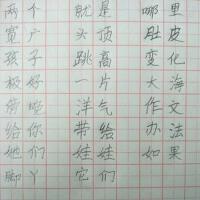 两个 就是 哪里
宽广 头顶 肚皮
孩子 跳高 变化
极好 一片 大海
傍晚 洋气 作文
给你 带给 办法
她们 娃娃 如果
脚丫 它们